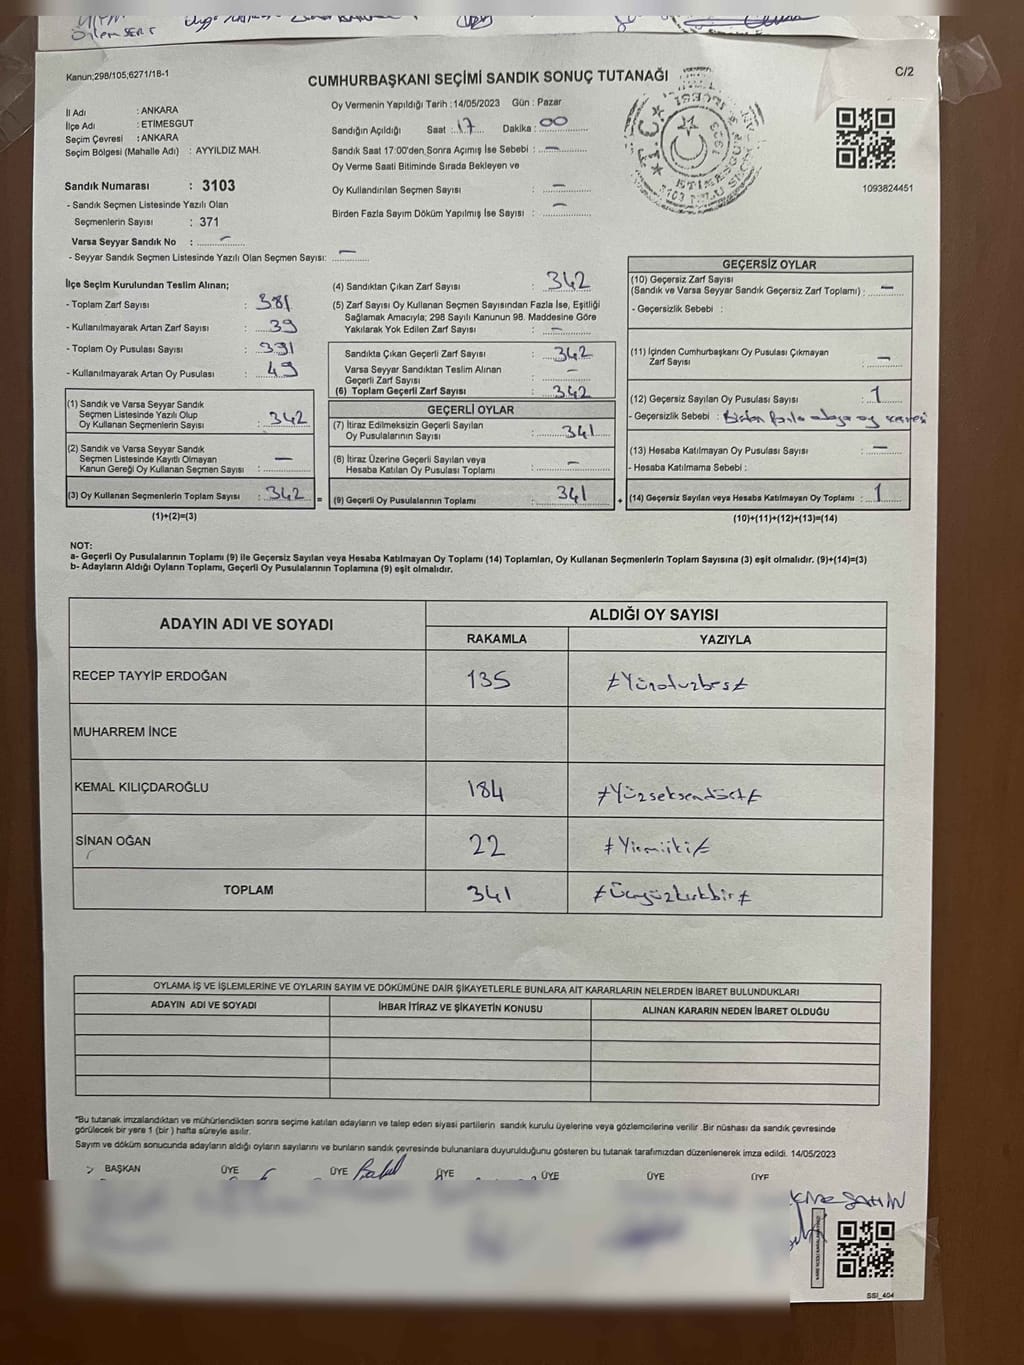 Kanun;298/105,6271/18-1
CUMHURBAŞKANI SEÇİMİ SANDIK SONUÇ TUTANAĞI
C/2
İl Adı : ANKARA
İlçe Adı : ETİMESGUT
Seçim Çevresi : ANKARA
Seçim Bölgesi (Mahalle Adı) : AYYILDIZ MAH.
Sandık Numarası : 3103
- Sandık Seçmen Listesinde Yazılı Olan
Seçmenlerin Sayısı : 371
Varsa Seyyar Sandık No : -
- Seyyar Sandık Seçmen Listesinde Yazılı Olan Seçmen Sayısı: -
Oy Vermenin Yapıldığı Tarih :14/05/2023 Gün : Pazar
Sandığın Açıldığı Saat : 17 Dakika : 00
Sandık Saat 17:00'den Sonra Açımış İse Sebebi : -
Oy Verme Saati Bitiminde Sırada Bekleyen ve
Oy Kullandırılan Seçmen Sayısı : -
Birden Fazla Sayım Döküm Yapılmış İse Sayısı : -
1093824451
İlçe Seçim Kurulundan Teslim Alınan;
- Toplam Zarf Sayısı : 381
- Kullanılmayarak Artan Zarf Sayısı : 39
- Toplam Oy Pusulası Sayısı : 391
- Kullanılmayarak Artan Oy Pusulası : 49
(1) Sandık ve Varsa Seyyar Sandık
Seçmen Listesinde Yazılı Olup
Oy Kullanan Seçmenlerin Sayısı : 342
(2) Sandık ve Varsa Seyyar Sandık
Seçmen Listesinde Kayıtlı Olmayan
Kanun Gereği Oy Kullanan Seçmen Sayısı : -
(3) Oy Kullanan Seçmenlerin Toplam Sayısı : 342 =
(1)+(2)=(3)
(4) Sandıktan Çıkan Zarf Sayısı : 342
(5) Zarf Sayısı Oy Kullanan Seçmen Sayısından Fazla İse, Eşitliği
Sağlamak Amacıyla; 298 Sayılı Kanunun 98. Maddesine Göre
Yakılarak Yok Edilen Zarf Sayısı : -
Sandıkta Çıkan Geçerli Zarf Sayısı : 342
Varsa Seyyar Sandıktan Teslim Alınan
Geçerli Zarf Sayısı : -
(6) Toplam Geçerli Zarf Sayısı : 342
GEÇERLİ OYLAR
(7) İtiraz Edilmeksizin Geçerli Sayılan
Oy Pusulalarının Sayısı : 341
(8) İtiraz Üzerine Geçerli Sayılan veya
Hesaba Katılan Oy Pusulası Toplamı : -
(9) Geçerli Oy Pusulalarının Toplamı : 341 +
GEÇERSİZ OYLAR
(10) Geçersiz Zarf Sayısı
(Sandık ve Varsa Seyyar Sandık Geçersiz Zarf Toplamı) : -
- Geçersizlik Sebebi :
(11) İçinden Cumhurbaşkanı Oy Pusulası Çıkmayan
Zarf Sayısı : -
(12) Geçersiz Sayılan Oy Pusulası Sayısı : 1
- Geçersizlik Sebebi : Birden fazla adaya oy
(13) Hesaba Katılmayan Oy Pusulası Sayısı : -
- Hesaba Katılmama Sebebi :
(14) Geçersiz Sayılan veya Hesaba Katılmayan Oy Toplamı : 1
(10)+(11)+(12)+(13)=(14)
NOT:
a- Geçerli Oy Pusulalarının Toplamı (9) ile Geçersiz Sayılan veya Hesaba Katılmayan Oy Toplamı (14) Toplamları, Oy Kullanan Seçmenlerin Toplam Sayısına (3) eşit olmalıdır. (9)+(14)=(3)
b- Adayların Aldığı Oyların Toplamı, Geçerli Oy Pusulalarının Toplamına (9) eşit olmalıdır.
ADAYIN ADI VE SOYADI
ALDIĞI OY SAYISI
RAKAMLA YAZIYLA
RECEP TAYYİP ERDOĞAN 135 #Yüzotuzbeş#
MUHARREM İNCE
KEMAL KILIÇDAROĞLU 184 #Yüzseksendört#
SİNAN OĞAN 22 #Yirmiiki#
TOPLAM 341 #Üçyüzkırkbir#
OYLAMA İŞ VE İŞLEMLERİNE VE OYLARIN SAYIM VE DÖKÜMÜNE DAİR ŞİKAYETLERLE BUNLARA AİT KARARLARIN NELERDEN İBARET BULUNDUKLARI
ADAYIN ADI VE SOYADI İHBAR İTİRAZ VE ŞİKAYETİN KONUSU ALINAN KARARIN NEDEN İBARET OLDUĞU
*Bu tutanak imzalandıktan ve mühürlendikten sonra seçime katılan adayların ve talep eden siyasi partilerin sandık kurulu üyelerine veya gözlemcilerine verilir .Bir nüshası da sandık çevresinde
görülecek bir yere 1 (bir ) hafta süreyle asılır.
Sayım ve döküm sonucunda adayların aldığı oyların sayılarını ve bunların sandık çevresinde bulunanlara duyurulduğunu gösteren bu tutanak tarafımızdan düzenlenerek imza edildi. 14/05/2023
BAŞKAN ÜYE ÜYE ÜYE ÜYE ÜYE ÜYE
ŞAHİN
SSI_404